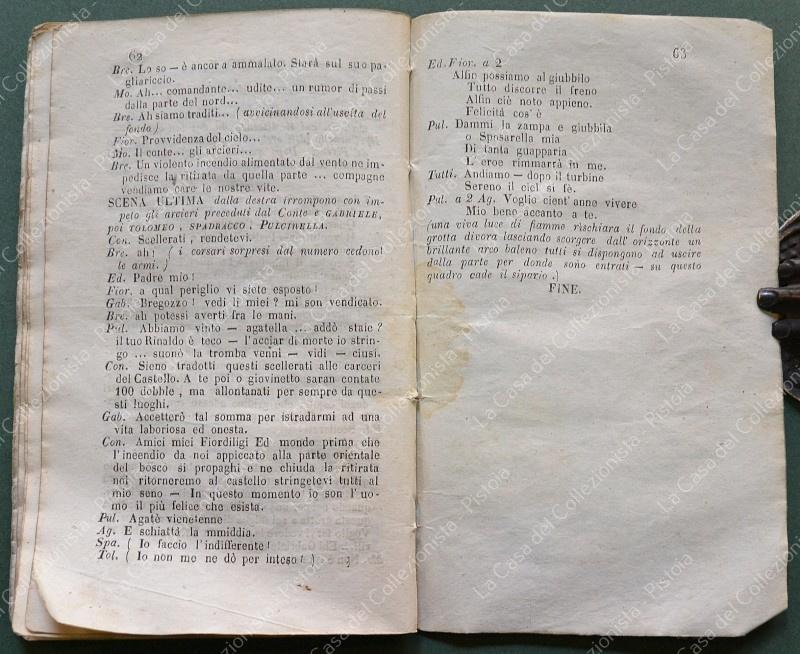 62
Bre. Lo so — è ancora ammalato. Starà sul suo pa-
gliariccio.
Mo. Ah... comandante... udite... un rumor di passi
dalla parte del nord...
Bre. Ah siamo traditi... ( avvicinandosi all'uscita del
fondo )
Fior. Provvidenza del cielo...
Mo. Il conte... gli arcieri...
Bre. Un violento incendio alimentato dal vento ne im-
pedisce la ritirata da quella parte ... compagne
vendiamo care le nostre vite.
SCENA ULTIMA dalla destra irrompono con im-
peto gli arcieri preceduti dal Conte e GABRIELE,
poi TOLOMEO , SPADRACCO , PULCINELLA.
Con. Scellerati , rendetevi.
Bre. ah! ( i corsari sorpresi dal numero cedono!
le armi. )
Ed. Padre mio!
Fior. a qual periglio vi siete esposto!
Gab. Bregozzo! vedi li miei? mi son vendicato.
Bre. ah potessi averti fra le mani.
Pul. Abbiamo vinto — agatella ... addò staie?
il tuo Rinaldo è teco — l'acciar di morte io strin-
go ... suonò la tromba venni — vidi — ciusi.
Con. Sieno tradotti questi scellerati alle carceri
del Castello. A te poi o giovinetto saran contate
100 dobble , ma allontanati per sempre da que-
sti luoghi.
Gab. Accetterò tal somma per istradarmi ad una
vita laboriosa ed onesta.
Con. Amici miei Fiordiligi Ed mondo prima che
l'incendio da noi appiccato alla parte orientale
del bosco si propaghi e ne chiuda la ritirata
noi ritorneremo al castello stringetevi tutti al
mio seno — In questo momento io son l'uo-
mo il più felice che esista.
Pul. Agatè vienetenne
Ag. E schiattá la mmiddia.
Spa. ( Io faccio l'indifferente!
Tol. ( Io non me ne dò per inteso! )
63
Ed. Fior. a 2
Alfin possiamo al giubbilo
Tutto discorre il freno
Alfin ciè noto appieno.
Felicità cos'è
Pul. Dammi la zampa e giubbila
o Sposarella mia
Di tanta guapparia
L'eroe rimmarrà in me.
Tutti. Andiamo — dopo il turbine
Sereno il ciel si fè.
Pul. a 2 Ag. Voglio cient'anne vivere
Mio bene accanto a te.
(una viva luce di fiamme rischiara il fondo della
grotta divora lasciando scorgere dall'orizzonte un
brillante arco baleno tutti si dispongono ad uscire
dalla parte per donde sono entrati — su questo
quadro cade il sipario .)
FINE.
La Casa del Collezionista - Pistoia